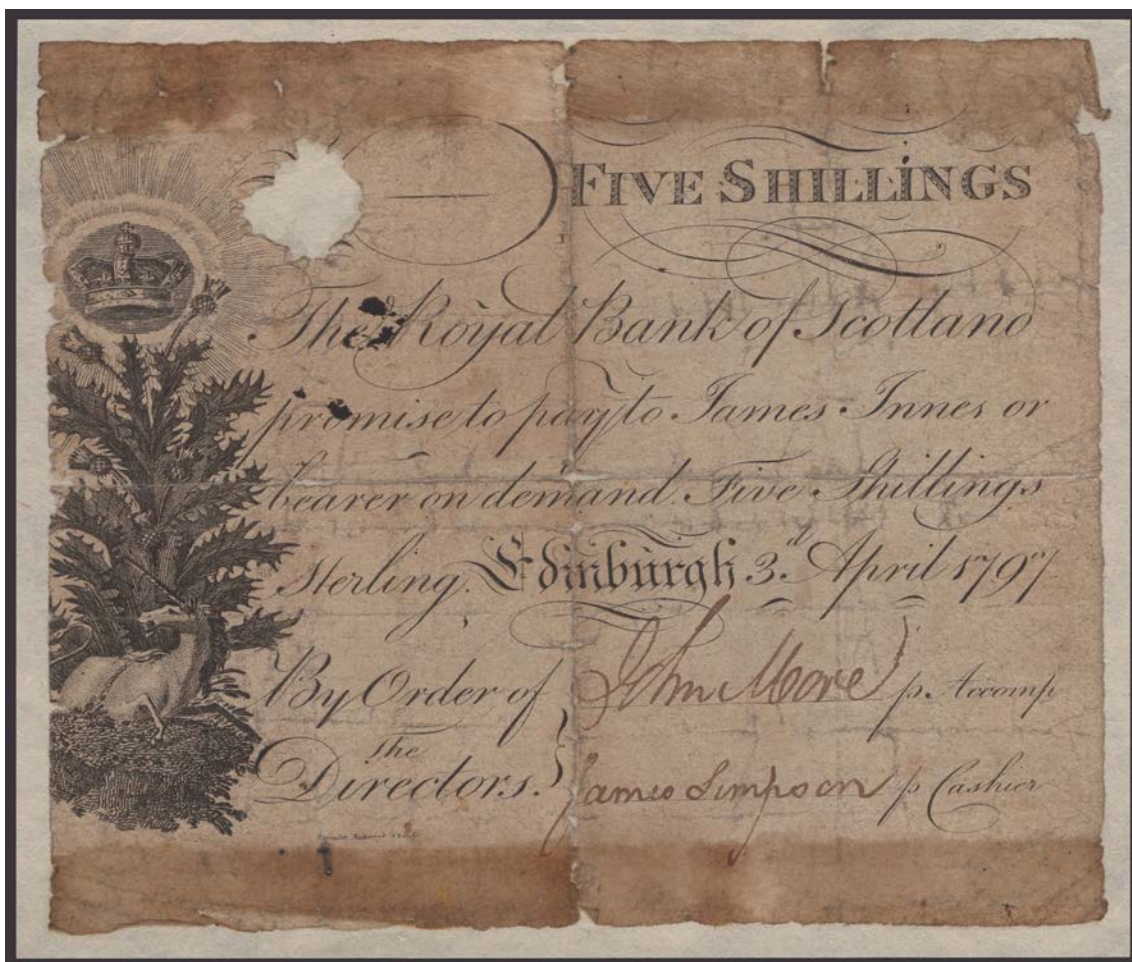 FIVE SHILLINGS
The Royal Bank of Scotland
promise to pay to James Innes or
bearer on demand Five Shillings
Sterling. Edinburgh 3.d April 1797
By Order of John More p. Accompt
The
Directors. James Simpson p Cashier